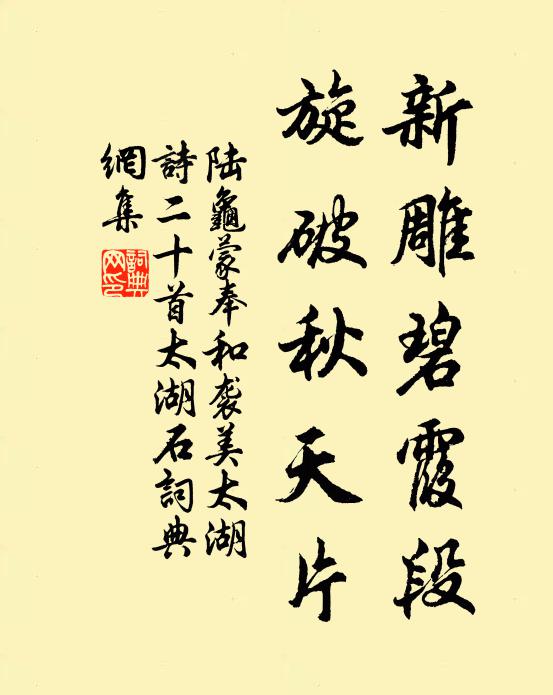 新雕碧霞段
旋破秋天片
陆龜蒙奉和袭美太湖
詩二十首太湖石詞典
網集
詞典
网印